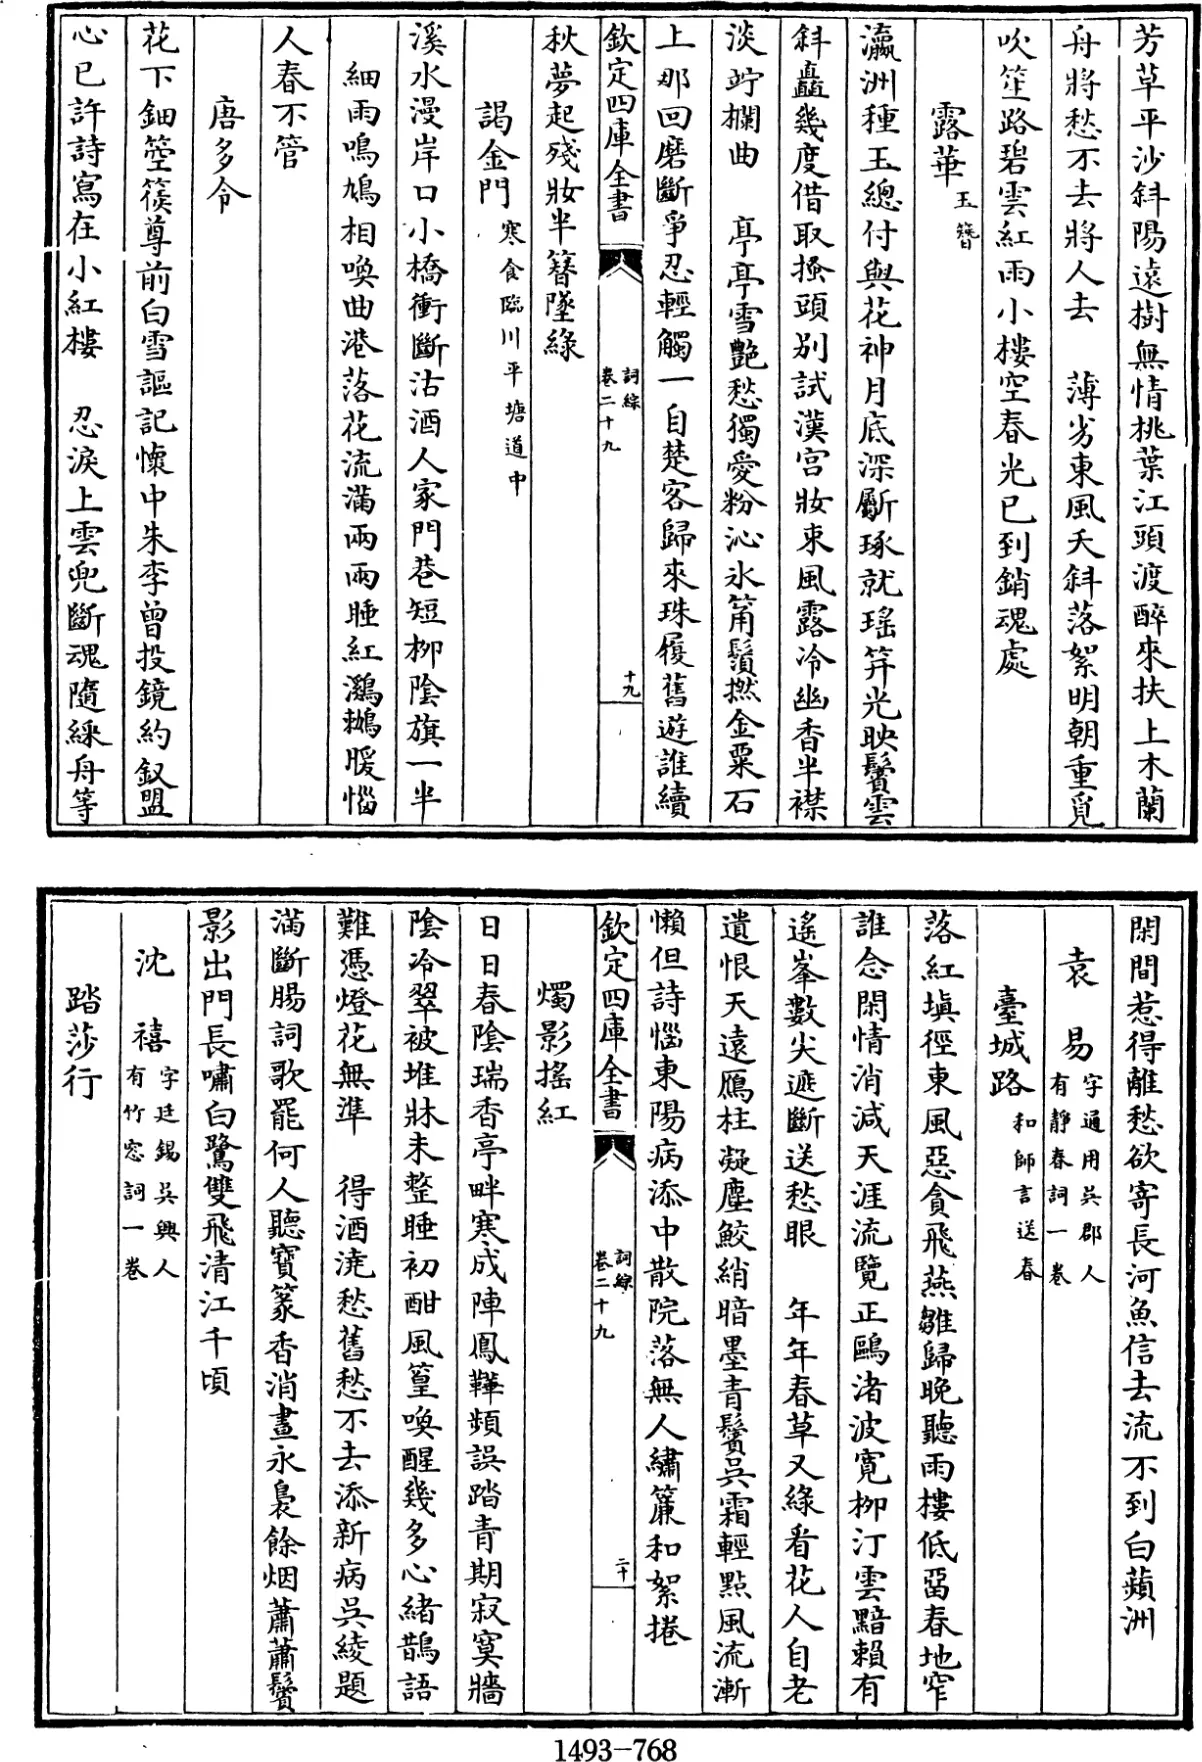 芳草平沙斜陽遠樹無情桃葉江頭渡醉來扶上木蘭
舟將愁不去將人去　薄劣東風夭斜落絮明朝重覓
吹笙路碧雲紅雨小樓空春光已到銷魂處
露華玉簪
瀛洲種玉總付與花神月底深斸琢就瑶笄光映鬢雲
斜矗幾度借取搔頭别試漢宫妝束風露冷幽香半襟
淡竚欄曲　亭亭雪艶愁獨愛粉沁氷筩鬚撚金粟石
上那回磨斷爭忍輕觸一自楚客歸來珠履舊遊誰續
欽定四庫全書　詞綜卷二十九　十九
秋夢起殘妝半簪墜綠
謁金門寒食臨川平塘道中
溪水漫岸口小橋衝斷沽酒人家門巷短柳陰旗一半
細雨鳴鳩相喚曲港落花流滿兩兩睡紅鸂鶒暖惱
人春不管
唐多令
花下鈿箜篌尊前白雪謳記懷中朱李曾投鏡約釵盟
心已許詩寫在小紅樓　忍淚上雲兜斷魂隨綵舟等
閑間惹得離愁欲寄長河魚信去流不到白蘋洲
袁易字通用吳郡人有靜春詞一卷
臺城路和師言送春
落紅塡徑東風惡貪飛燕雛歸晚聽雨樓低畱春地窄
誰念閑情消減天涯流覽正鷗渚波寛柳汀雲黯賴有
遙峯數尖遮斷送愁眼　年年春草又綠看花人自老
遺恨天遠雁柱凝塵鮫綃暗墨青鬢吳霜輕點風流漸
懶但詩惱東陽病添中散院落無人繡簾和絮捲
欽定四庫全書　詞綜卷二十九　二十
燭影搖紅
日日春陰瑞香亭畔寒成陣鳳鞾頻誤踏青期寂寞牆
陰冷翠被堆牀未整睡初酣風篁喚醒幾多心緒鵲語
難憑燈花無準　得酒澆愁舊愁不去添新病吳綾題
滿斷腸詞歌罷何人聽寶篆香消晝永裊餘烟蕭蕭鬢
影出門長嘯白鷺雙飛清江千頃
沈禧字廷錫吳興人有竹窓詞一卷
踏莎行
1493-768